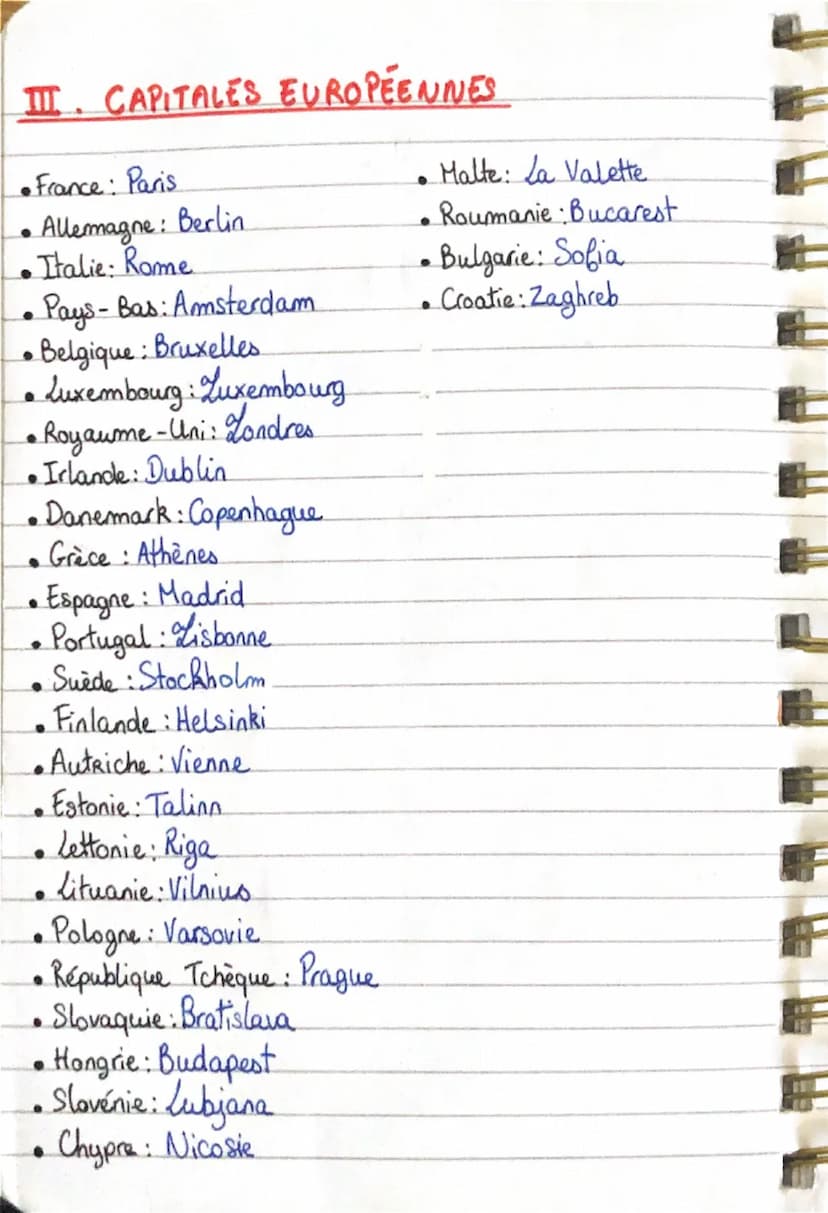 III. CAPITALES EUROPÉENNES
• France : Paris
• Allemagne : Berlin
• Italie : Rome
• Pays-Bas : Amsterdam
• Belgique : Bruxelles
• Luxembourg : Luxembourg
• Royaume-Uni : Londres
• Irlande : Dublin
• Danemark : Copenhague
• Grèce : Athènes
• Espagne : Madrid
• Portugal : Lisbonne
• Suède : Stockholm
• Finlande : Helsinki
• Autriche : Vienne
• Estonie : Talinn
• Lettonie : Riga
• Lituanie : Vilnius
• Pologne : Varsovie
• République Tchèque : Prague
• Slovaquie : Bratislava
• Hongrie : Budapest
• Slovénie : Lubjana
• Chypre : Nicosie
• Malte : La Valette
• Roumanie : Bucarest
• Bulgarie : Sofia
• Croatie : Zaghreb